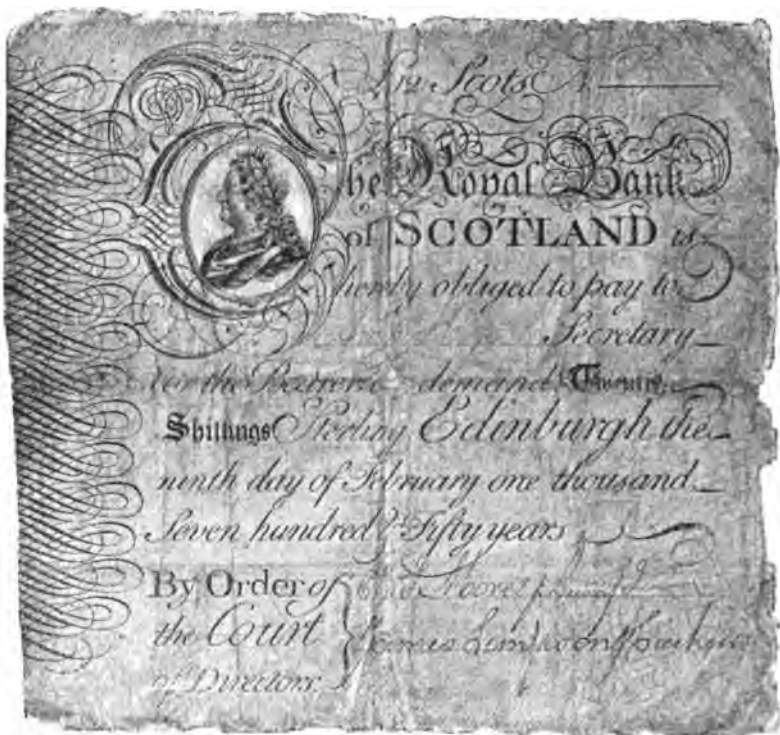 £12 Scots N
The Royal Bank
of SCOTLAND is
hereby obliged to pay to
Secretary
or the Bearer on demand Twenty
Shillings Sterling Edinburgh the
ninth day of February one thousand
Seven hundred & Fifty years
By Order of
the Court
of Directors